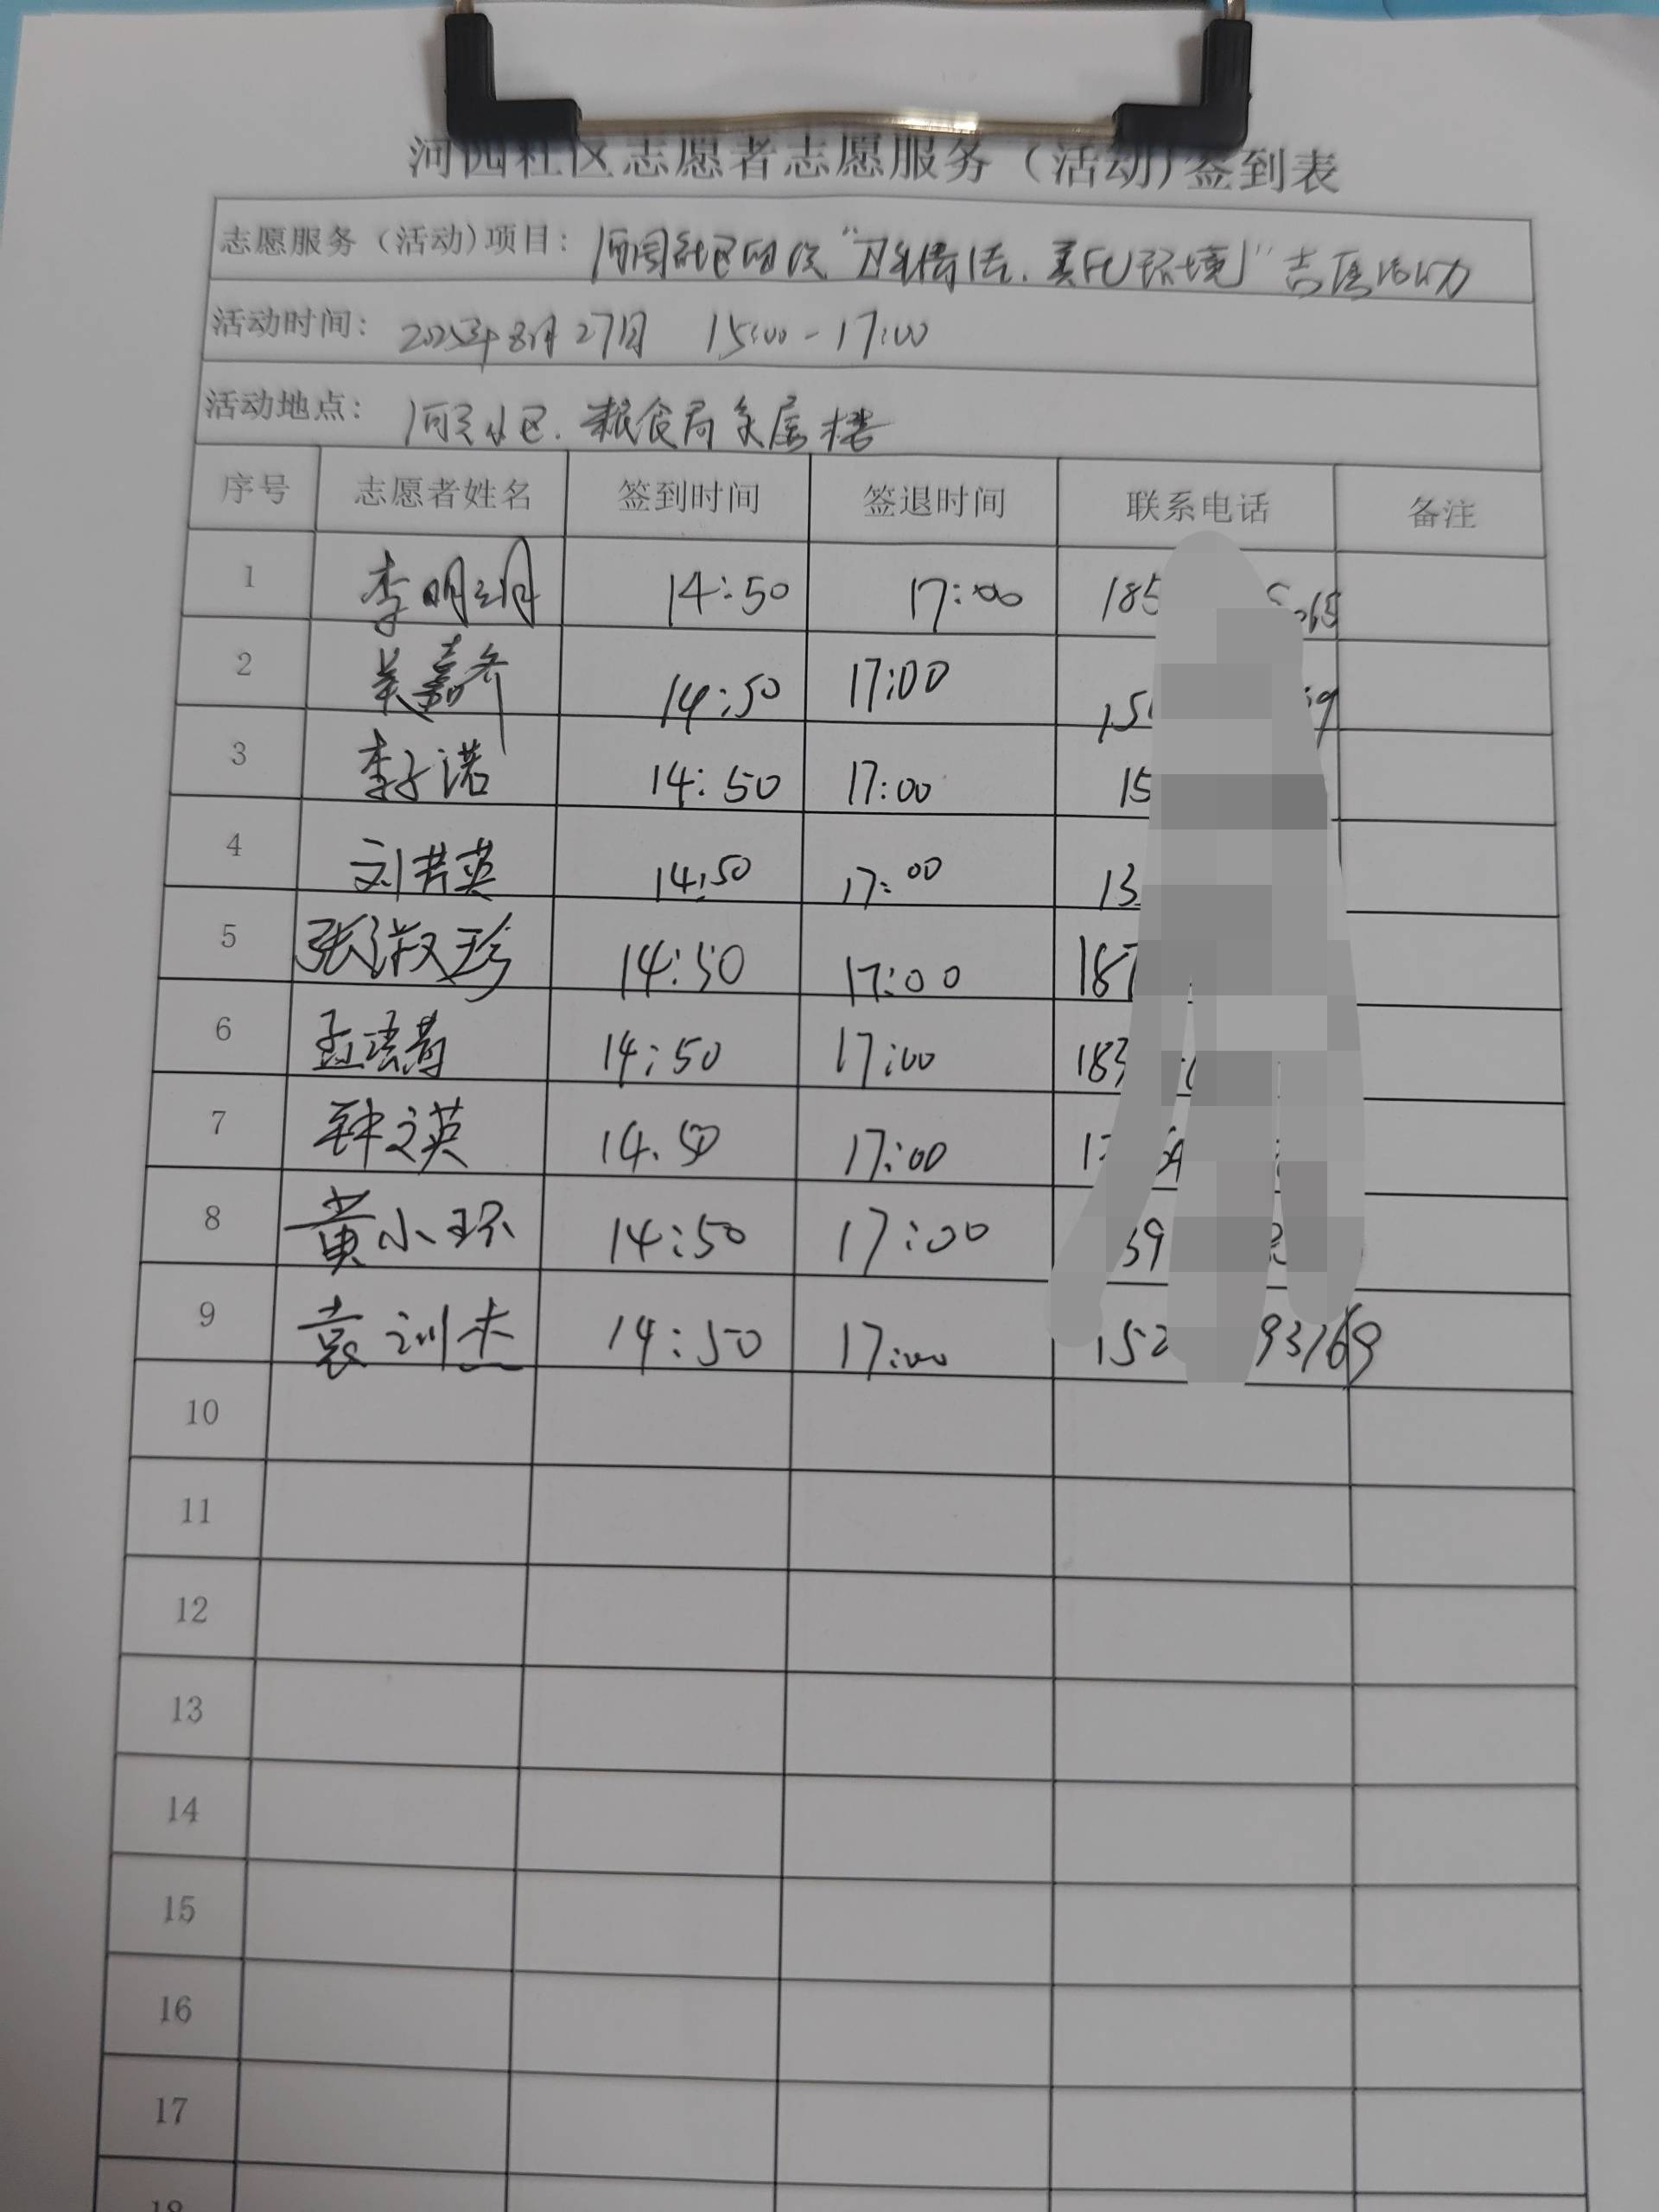 社区志愿者志愿服务（活动)签到表
志愿服务（活动)项目：社区 "卫生清洁，美化环境" 志愿活动
活动时间：2025年8月27日 15:00-17:00
活动地点：小区. 粮食局家属楼
序号 志愿者姓名 签到时间 签退时间 联系电话 备注
1 李明 14:50 17:00 185
2 吴嘉齐 14:50 17:00
3 李子诺 14:50 17:00 15
4 刘若英 14:50 17:00 13
5 张淑珍 14:50 17:00 187
6 孟 14:50 17:00 183
7 钟文英 14.50 17:00
8 黄小环 14:50 17:00 39
9 袁训杰 14:50 17:00 152 93169
10
11
12
13
14
15
16
17
18